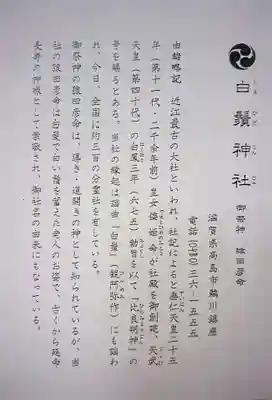 白鬚神社
しら ひげ じん じゃ
御祭神 猿田彦命
滋賀県高島市鵜川鎮座
電話(〇七四〇)三六-一五五五
由緒略記 近江最古の大社といわれ、社記によると垂仁天皇二十五
年(第十一代・二千余年前)皇女倭姫命が社殿を御創建、天武
天皇(第四十代)の白鳳三年(六七五)勅旨を以て「比良明神」の
号を賜るとある。当社の縁起は謡曲「白鬚」(観阿弥作)にも謡わ
れ、今日、全国に約三百の分霊社を有している。
御祭神の猿田彦命は、導き・道開きの神として知られているが、当
社の猿田彦命は白髪で白い鬚を蓄えた老人のお姿で、古くから延命
長寿の神様として崇敬され、御社名の由来にもなっている。